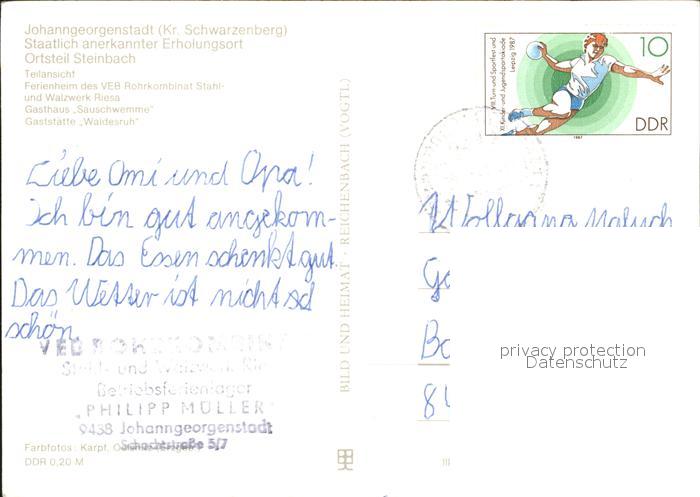 Johanngeorgenstadt (Kr. Schwarzenberg)
Staatlich anerkannter Erholungsort
Ortsteil Steinbach
Teilansicht
Ferienheim des VEB Rohrkombinat Stahl-
und Walzwerk Riesa
Gasthaus „Sauschwemme"
Gaststätte „Waldesruh"
Liebe Omi und Opa!
ich bin gut angekom-
men. Das Essen schenkt gut.
Das Wetter ist nicht so
schön
VEB ROHRKOMBINAT
Stahl- und Walzwerk Rie
Betriebsferienlager
„PHILIPP MÜLLER"
9438 Johanngeorgenstadt
Schachtstraße 5/7
Farbfotos: Karpf,
DDR 0,20 M
BILD UND HEIMAT · REICHENBACH (VOGTL)
III
VIII. Turn- und Sportfest und
XI. Kinder- und Jugendspartakiade
Leipzig 1987
10
DDR
1987
Ga
Bo
privacy protection
Datenschutz